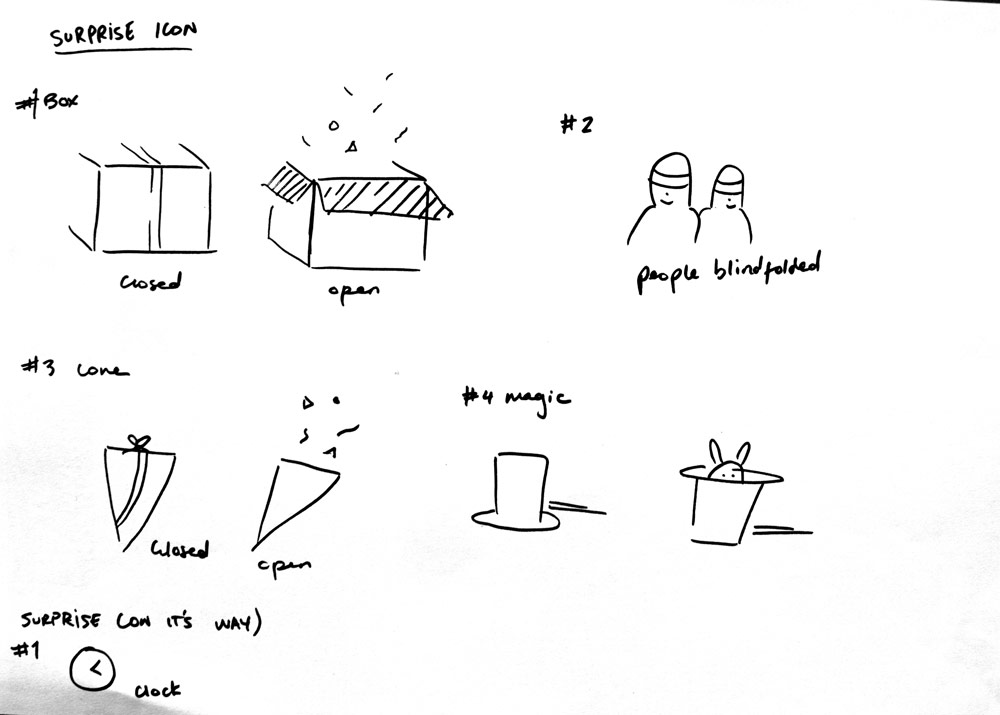 SURPRISE ICON
#1 Box
closed
open
#2
people blindfolded
#3 cone
closed
open
#4 magic
SURPRISE (ON IT'S WAY)
#1
clock